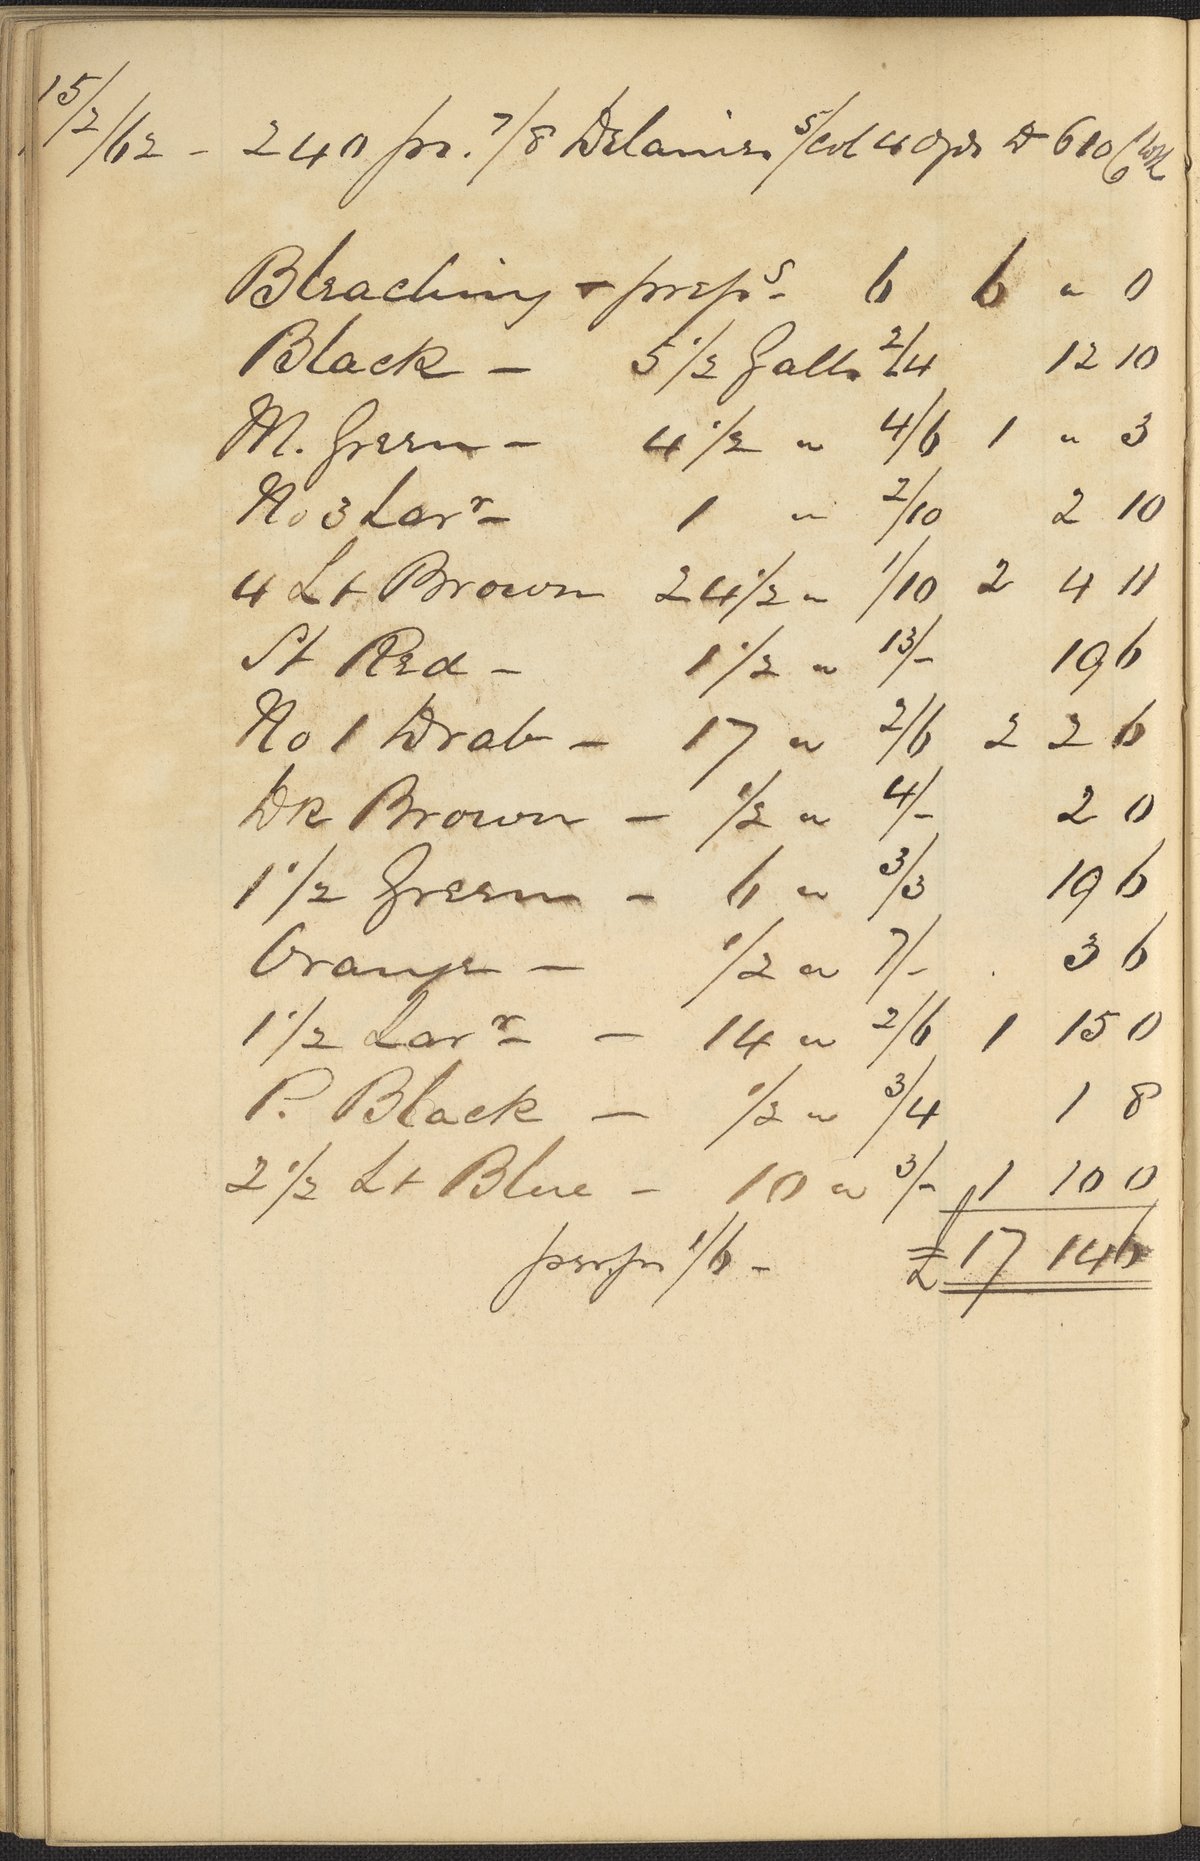 15/2/62 - 240 ps. 7/8 Delaines 5/Col 40 yds D 610/6
Bleaching + preps - 6 6 " 0
Black - 5 1/2 Galls 2/4 12 10
M. Green - 4 1/2 " 4/6 1 " 3
No 3 Lavr - 1 " 2/10 2 10
4 Lt Brown 24 1/2 " 1/10 2 4 11
St Red - 1 1/2 " 13/- 19 6
No 1 Drab - 17 " 2/6 2 2 6
Dk Brown - 1/2 " 4/- 2 0
1 1/2 Green - 6 " 3/3 19 6
Orange - 1/2 " 7/- 3 6
1 1/2 Lavr - 14 " 2/6 1 15 0
P. Black - 1/2 " 3/4 1 8
2 1/2 Lt Blue - 10 " 3/- 1 10 0
per ps 1/6 - £ 17 14 6